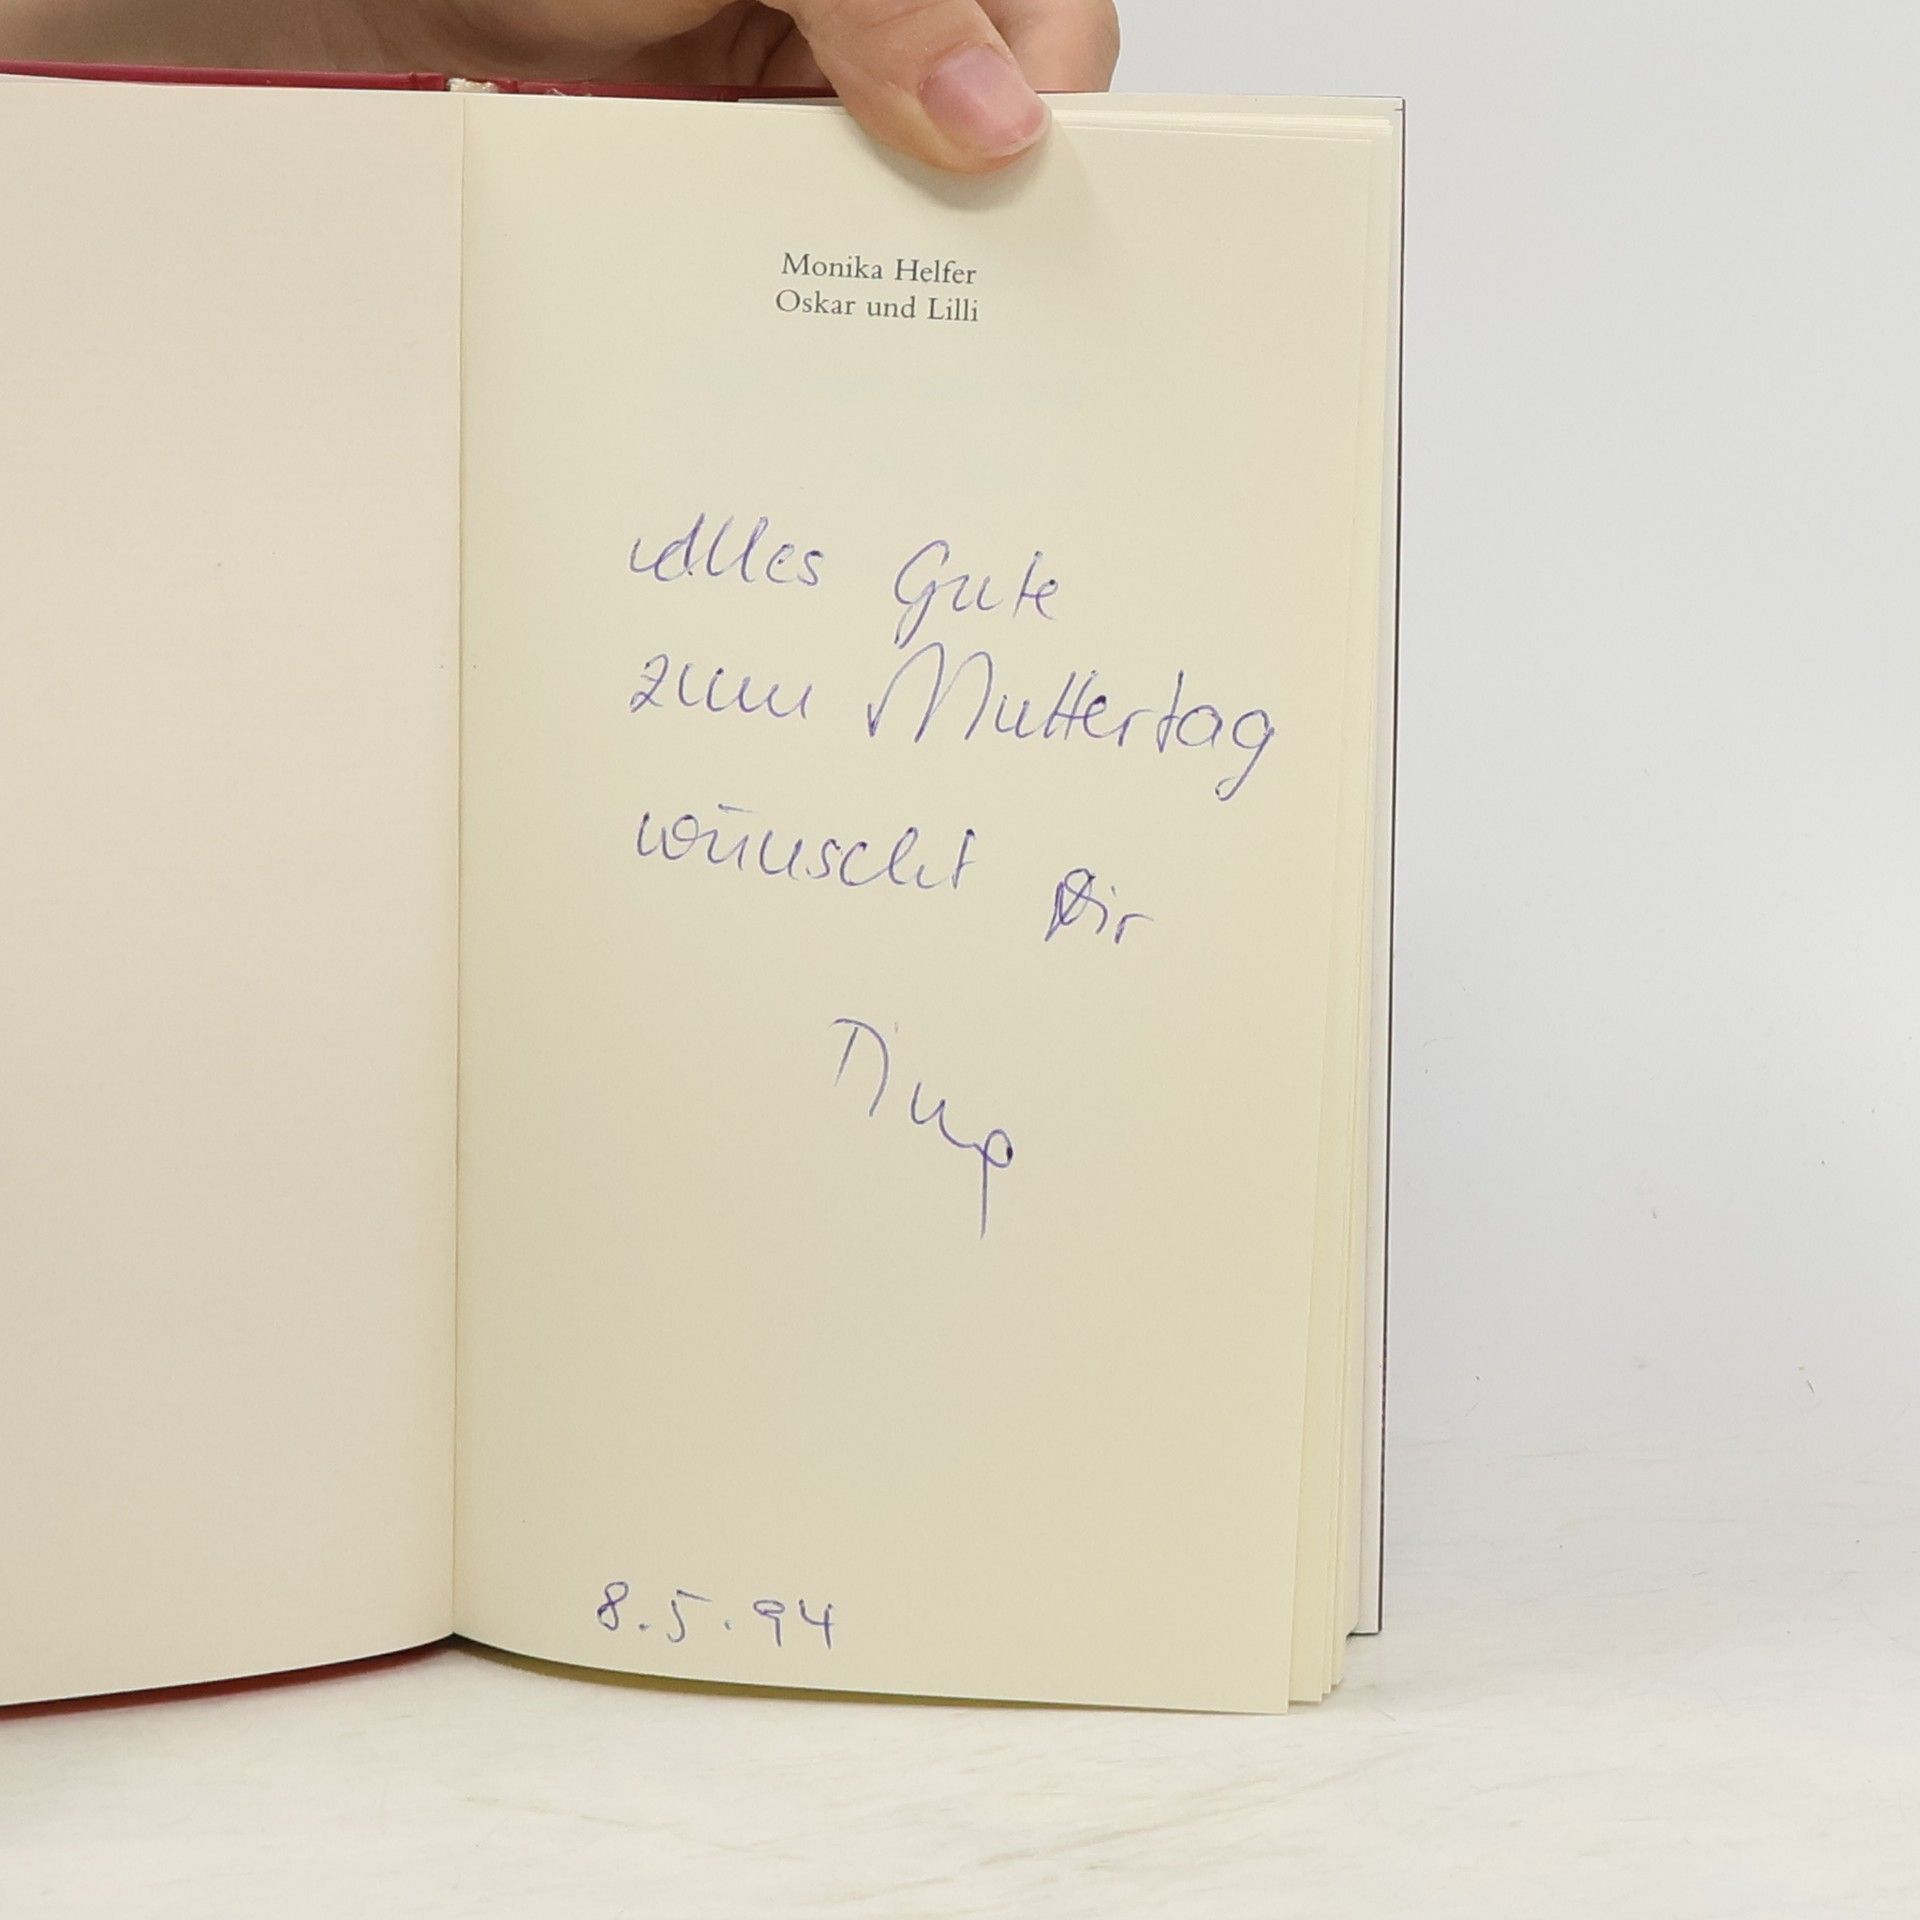 Monika Helfer
Oskar und Lilli
Alles Gute
zum Muttertag
wünscht Dir
8.5.94